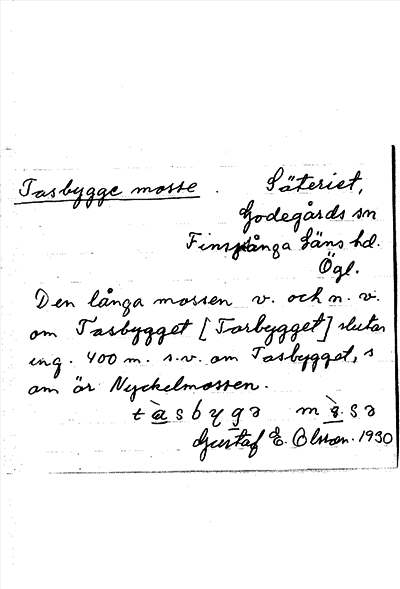 Tasbygge mosse. Säteriet,
Godegårds sn
Finspånga läns hd.
Ögl.
Den långa mossen v. och n. v.
om Tasbygget [Torbygget] slutar
ung. 400 m. s.v. om Tasbygget, s
om är Nyckelmossen.
tàsbygə m sə
Gustaf E. Olsson. 1930